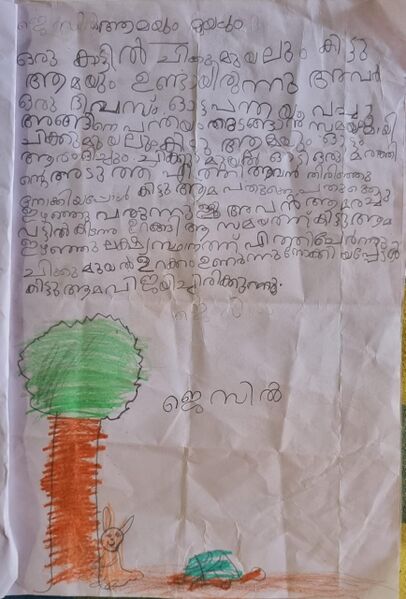 ആമയും മുയലും
ഒരു കാട്ടിൽ ചിക്കുമുയലും കിട്ടു
ആമയും ഉണ്ടായിരുന്നു അവർ
ഒരു ദിവസം ഓട്ടപന്തയം വച്ചു
അങ്ങനെ പന്തയം തുടങ്ങാൻ സമയമായി
ചിക്കുമുയലും കിട്ടു ആമയും ഓട്ടം
ആരംഭിച്ചും. ചിക്കുമുയൽ ഓടി ഒരു മരത്തി
ന്റെ അടുത്ത് എത്തി അവൻ തിരിഞ്ഞു
നോക്കിയപ്പോൾ കിട്ടു ആമ പതുക്കെ പതുക്കെ
ഇഴഞ്ഞു വരുന്നു അവൻ ആ മരച്ചു
വട്ടിൽ കിടന്നു ഉറങ്ങി ആ സമയത്ത് കിട്ടു ആമ
ഇഴഞ്ഞു ലക്ഷ്യസ്ഥാനത്ത് എത്തിച്ചേർന്നു
ചിക്കു മുയൽ ഉറക്കം ഉണർന്നു നോക്കിയപ്പോൾ
കിട്ടു ആമ വിജയിച്ചിരിക്കുന്നു.
ജെസിൽ